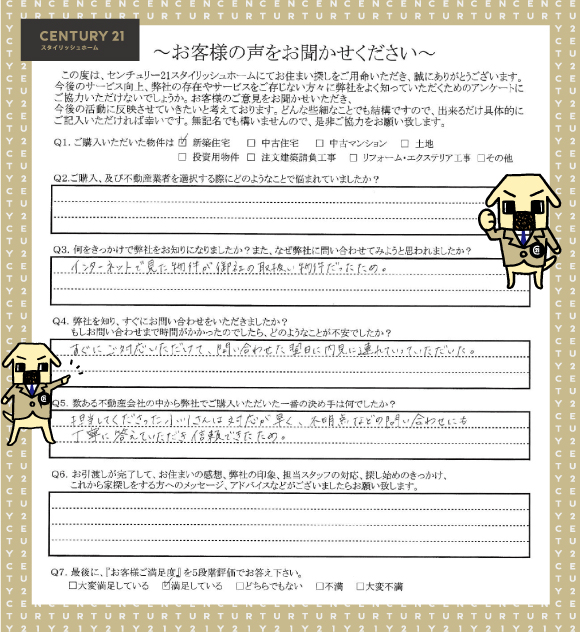 CENTURY 21
スタイリッシュホーム
～お客様の声をお聞かせください～
この度は、センチュリー21スタイリッシュホームにてお住まい探しをご用命いただき、誠にありがとうございます。
今後のサービス向上、弊社の存在やサービスをご存じない方々に弊社をよく知っていただくためのアンケートに
ご協力いただけないでしょうか。お客様のご意見をお聞かせいただき、
今後の活動に反映させていきたいと考えております。どんな些細なことでも結構ですので、出来るだけ具体的に
ご記入いただければ幸いです。無記名でも構いませんので、是非ご協力をお願い致します。
Q1. ご購入いただいた物件は ☑ 新築住宅 □ 中古住宅 □ 中古マンション □ 土地
□ 投資用物件 □ 注文建築請負工事 □ リフォーム・エクステリア工事 □その他
Q2.ご購入、及び不動産業者を選択する際にどのようなことで悩まれていましたか？
Q3. 何をきっかけで弊社をお知りになりましたか？また、なぜ弊社に問い合わせてみようと思われましたか？
インターネットで見た物件が御社の取扱い物件だったため。
Q4. 弊社を知り、すぐにお問い合わせをいただきましたか？
もしお問い合わせまで時間がかかったのでしたら、どのようなことが不安でしたか？
すぐにご対応いただけて、問い合わせた翌日に内見に連れていっていただいた。
Q5. 数ある不動産会社の中から弊社でご購入いただいた一番の決め手は何でしたか？
担当してくださった小川さんは対応が早く、不明点などの問い合わせにも
丁寧に答えていただき信頼できたため。
Q6. お引渡しが完了して、お住まいの感想、弊社の印象、担当スタッフの対応、探し始めのきっかけ、
これから家探しをする方へのメッセージ、アドバイスなどがございましたらお願い致します。
Q7. 最後に、『お客様ご満足度』を5段階評価でお答え下さい。
□大変満足している ☑満足している □どちらでもない □不満 □大変不満